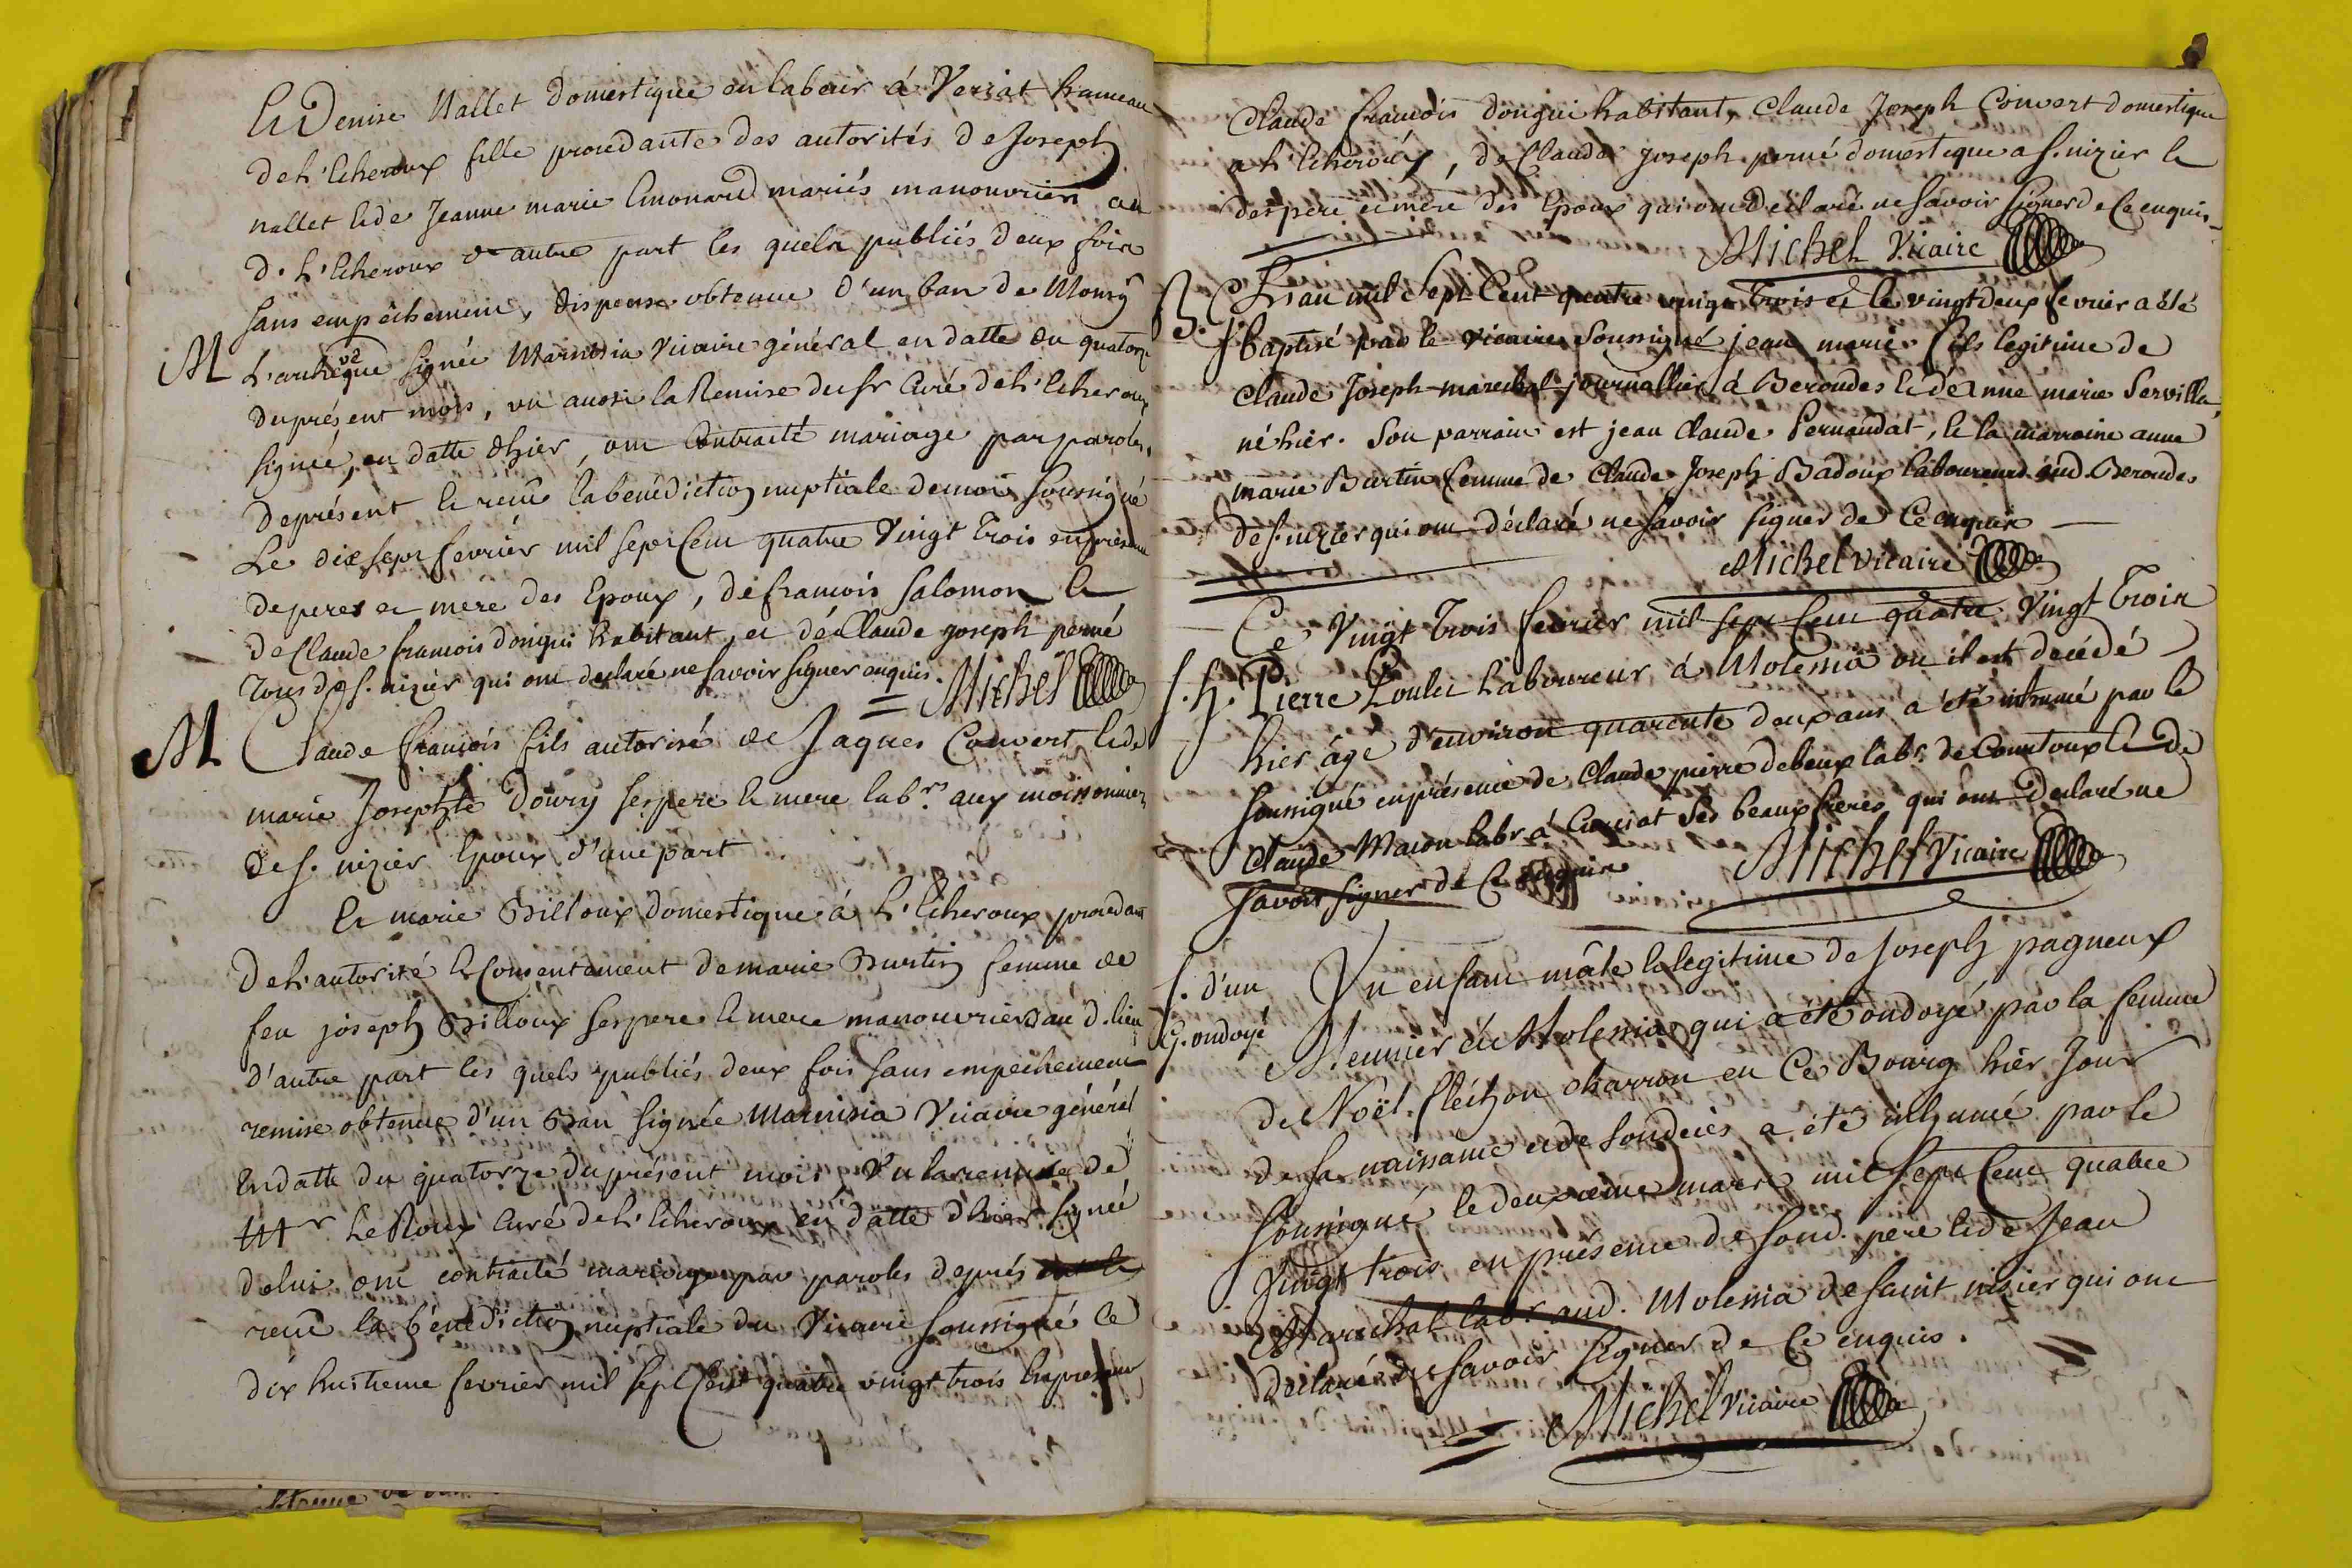 Et Denise Nallet domestique en labeur á Veriat hameau
de L'Etheroux fille procedante des autorités de Joseph
nallet et de Jeanne marie Emonard mariés manouvriers au
d. L'Etheroux d'autre part les quels publiés deux fois
sans empêchement, dispense obtenue d'un ban de Monsgr
M L'archeveque signée Marnisia Vicaire général en datte du quatorze
du présent mois, vu aussi la Remise du sr Curé de L'Etheroux
signée, en datte d'hier, ont Contracté mariage par paroles
de présent et recu la bénédiction nuptiale de moi soussigné
Le dix sept fevrier mil sept Cent quatre Vingt Trois en présence
de peres et mere des Epoux, de francois Salomon et
de Claude francois donqui habitant, et de Claude joseph perné
Tous de s. nizier qui ont declaré ne savoir signer enquis.
= Michel
M Claude francois fils autorisé de Jaques Convert et de
marie Josephte Doury ses pere et mere labrs aux moissonniers
de s. nizier Epoux d'une part.
Et marie Billoux domestique á L'Etheroux procedant
de L'autorité et Consentement de marie Burtin femme de
feu joseph Billoux ses pere et mere manouvriers au d. lieu
d'autre part les quels publiés deux fois sans empechement
remise obtenue d'un Ban signée Marnisia Vicaire général
En datte du quatorze du présent mois, Vu la remise de
Mr LeRoux Curé de L'Etheroux en datte d'hier signée
de lui ont contracté mariage par paroles de présent et
recu la bénédiction nuptiale du Vicaire soussigné ce
dix huitieme fevrier mil sept Cent quatre vingt trois En présence
Claude francois donqui habitant, Claude Joseph Convert domestique
a L'Etheroux, de Claude joseph perné domestique a s. nizier et
des pere et mere des Epoux qui ont déclaré ne savoir signer de Ce enquis
Michel Vicaire
B. L'an mil Sept Cent quatre vingt Trois et le vingt deux fevrier a été
Baptisé par le vicaire soussigné jean marie fils legitime de
Claude Joseph marechal journallier á Beroudes et de Anne marie Servilla,
né hier. Son parrain est jean Claude Pernaudat, et la marraine anne
marie Burtin femme de Claude Joseph Badoux laboureurs aud. Beroudes
de s. nizier qui ont déclaré ne savoir signer de Ce enquis
Michel vicaire
Ce Vingt Trois fevrier mil sept Cent quatre Vingt Trois
S. h. Pierre Laboureur á Molessia ou il est decédé
hier âgé d'environ quarente deux ans a été inhumé par le
soussigné en présence de Claude pierre debeux labr. de Courtoux et de
Claude Maron labr á Curciat Ses beaux freres qui ont declaré ne
savoir signer de Ce enquis
Michel Vicaire
S. d'un Un enfant mâle et legitime de Joseph pagneux
G. ondoyé Meunier á Molessia qui a été ondoyé par la femme
de Noël charron en Ce Bourg hier Jour
de sa naissance et de son decès a été inhumé par le
soussigné le deuxieme mars mil sept Cent quatre
Vingt trois en présence de sond. pere et de Jean
Marechal labr. aud. Molessia de saint nizier qui ont
declaré ne savoir signer de Ce enquis.
Michel Vicaire